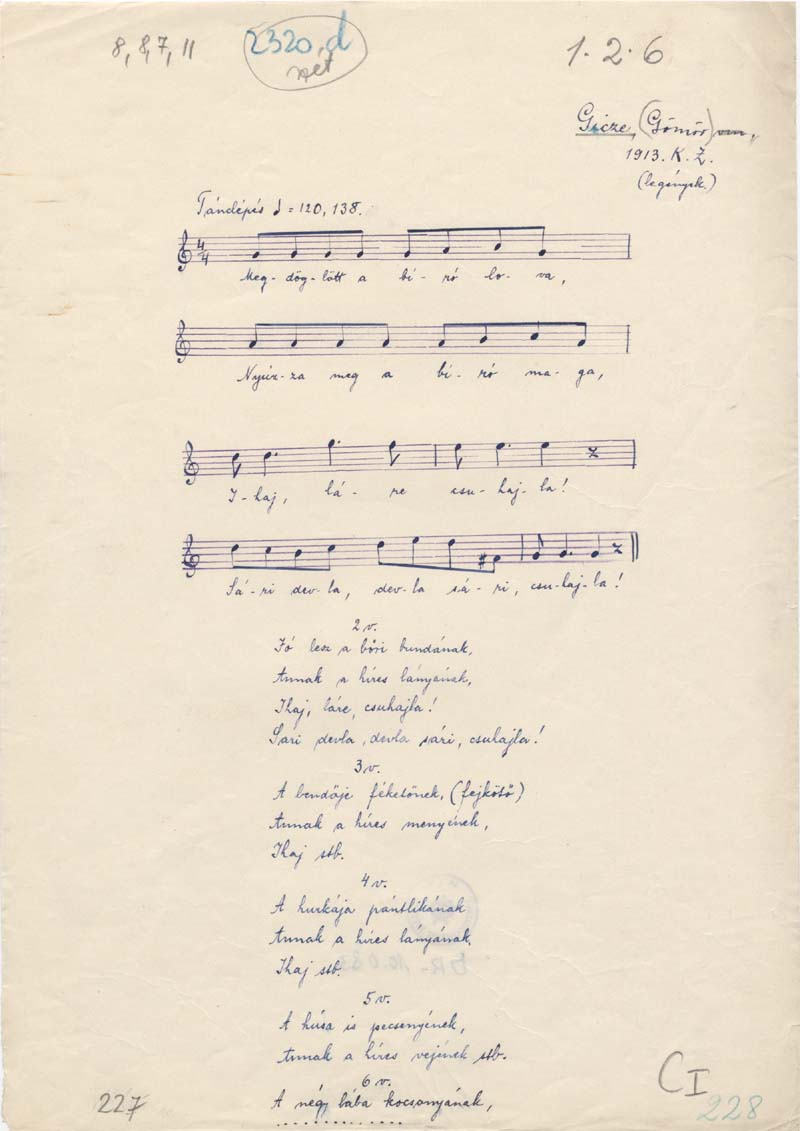 8, 8, 7, 11
2320, d
1. 2. 6
Gicze, (Gömör) vm.,
1913. K. Z.
(legények.)
Tánclépés = 120, 138.
4/4
Meg-dög-lött a bí-ró lo-va,
Nyúz-za meg a bí-ró ma-ga,
I-haj, lá-re csu-haj-la!
Sá-ri dev-la, dev-la sá-ri, csu-haj-la!
2 v.
Jó lesz a bőri bundának,
Annak a híres lányának,
Ihaj, láre, csuhajla!
Sári devla, devla sári, csuhajla!
3 v.
A bendője féketőnek, (fejkötő)
Annak a híres menyének,
Ihaj stb.
4 v.
A hurkája pántlikának
Annak a híres lányának,
Ihaj stb.
5 v.
A húsa is pecsenyének,
Annak a híres vejének stb.
6 v.
A négy lába kocsonyának,
..............
227
CI
228